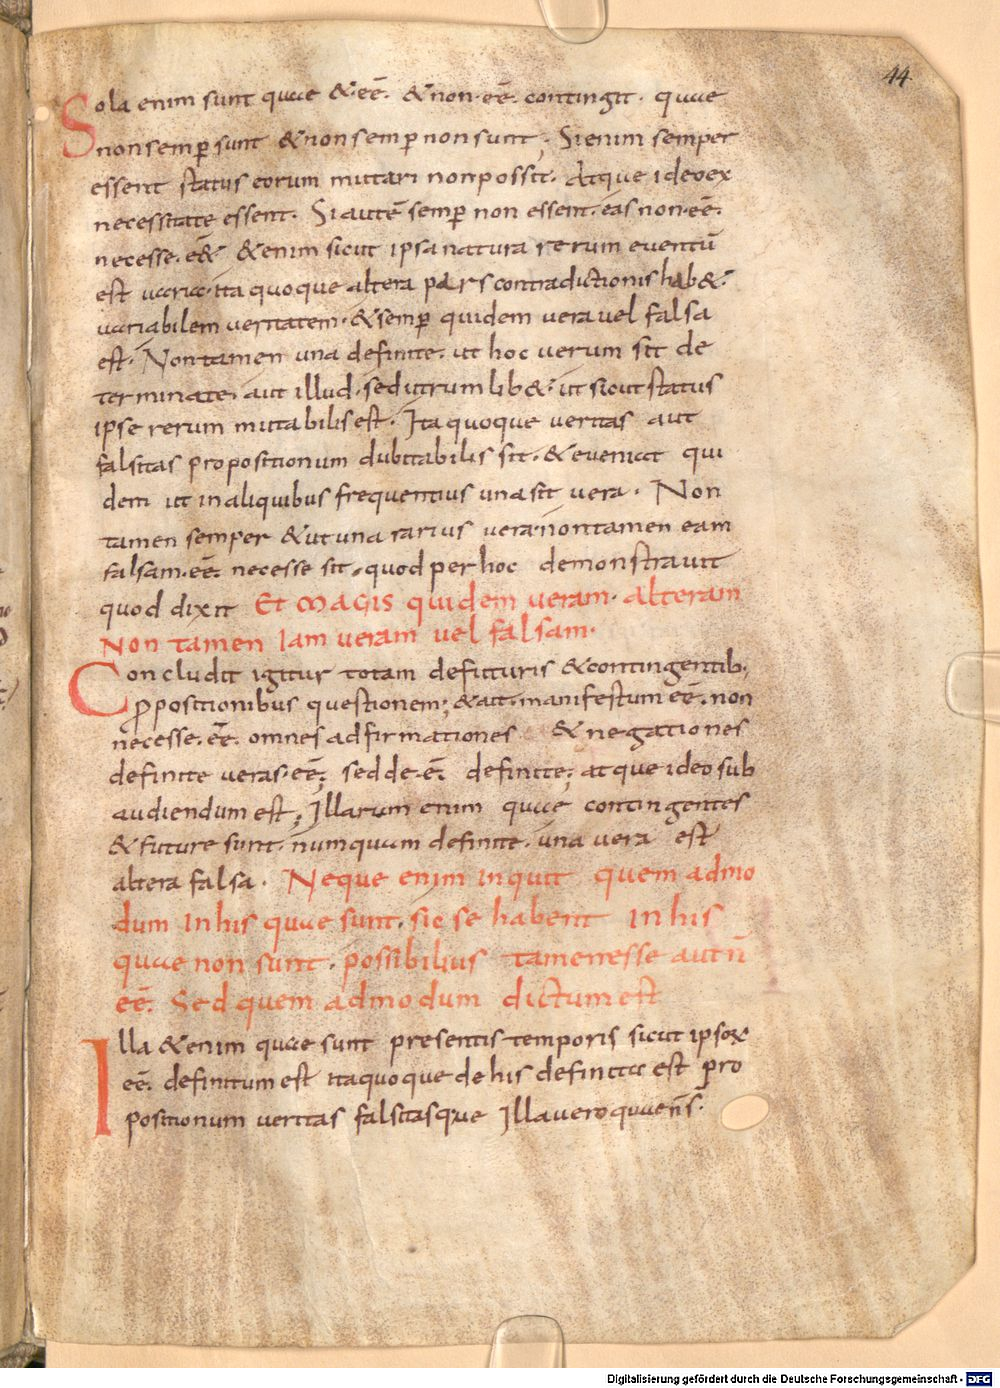 44
Sola enim sunt quae & eē. & non eē. contingit. quae
non semꝑ sunt & non semꝑ non sunt; Si enim semper
essent status eorum mutari non possit. Atque ideo ex
necessitate essent. Si autē semꝑ non essent. eas non eē.
necesse. e&. &enim sicut ipsa natura rerum euentū
est uaria. ita quoque altera pars contradictionis hab&.
uariabilem ueritatem. & semꝑ quidem uera uel falsa
est. Non tamen una definite. ut hoc uerum sit de
terminate. aut illud. sed utrum lib&. ut sicut status
ipse rerum mutabilis est. Ita quoque ueritas aut
falsitas propositionum dubitabilis sit. & eueniat qui
dem ut in aliquibus frequentius una sit uera. Non
tamen semper & ut una rarius uera. non tamen eam
falsam. eē. necesse sit. quod per hoc demonstrauit
quod dixit Et magis quidem ueram. alteram
Non tamen iam ueram uel falsam.
Concludit igitur totam defuturis & contingentib;
ꝓpositionibus questionem; & ait. manifestum eē. non
necesse. eē. omnes adfirmationes & negationes
definite ueras. eē; sed de. ē. definite; atque ideo sub
audiendum est; Illarum enim quae contingentes
& future sunt. numquam definite. una uera est
altera falsa. Neque enim inquit quem admo
dum in his quae sunt. sic se habent in his
quae non sunt. possibilius tamen esse aut n̄
eē. Sed quem admodum dictum est
Illa &enim quae sunt presentis temporis sicut ipsoꝝ
eē. definitum est ita quoque de his definita est pro
positionum ueritas falsitasque Illa uero quae n̄ s̄.
Digitalisierung gefördert durch die Deutsche Forschungsgemeinschaft - DFG